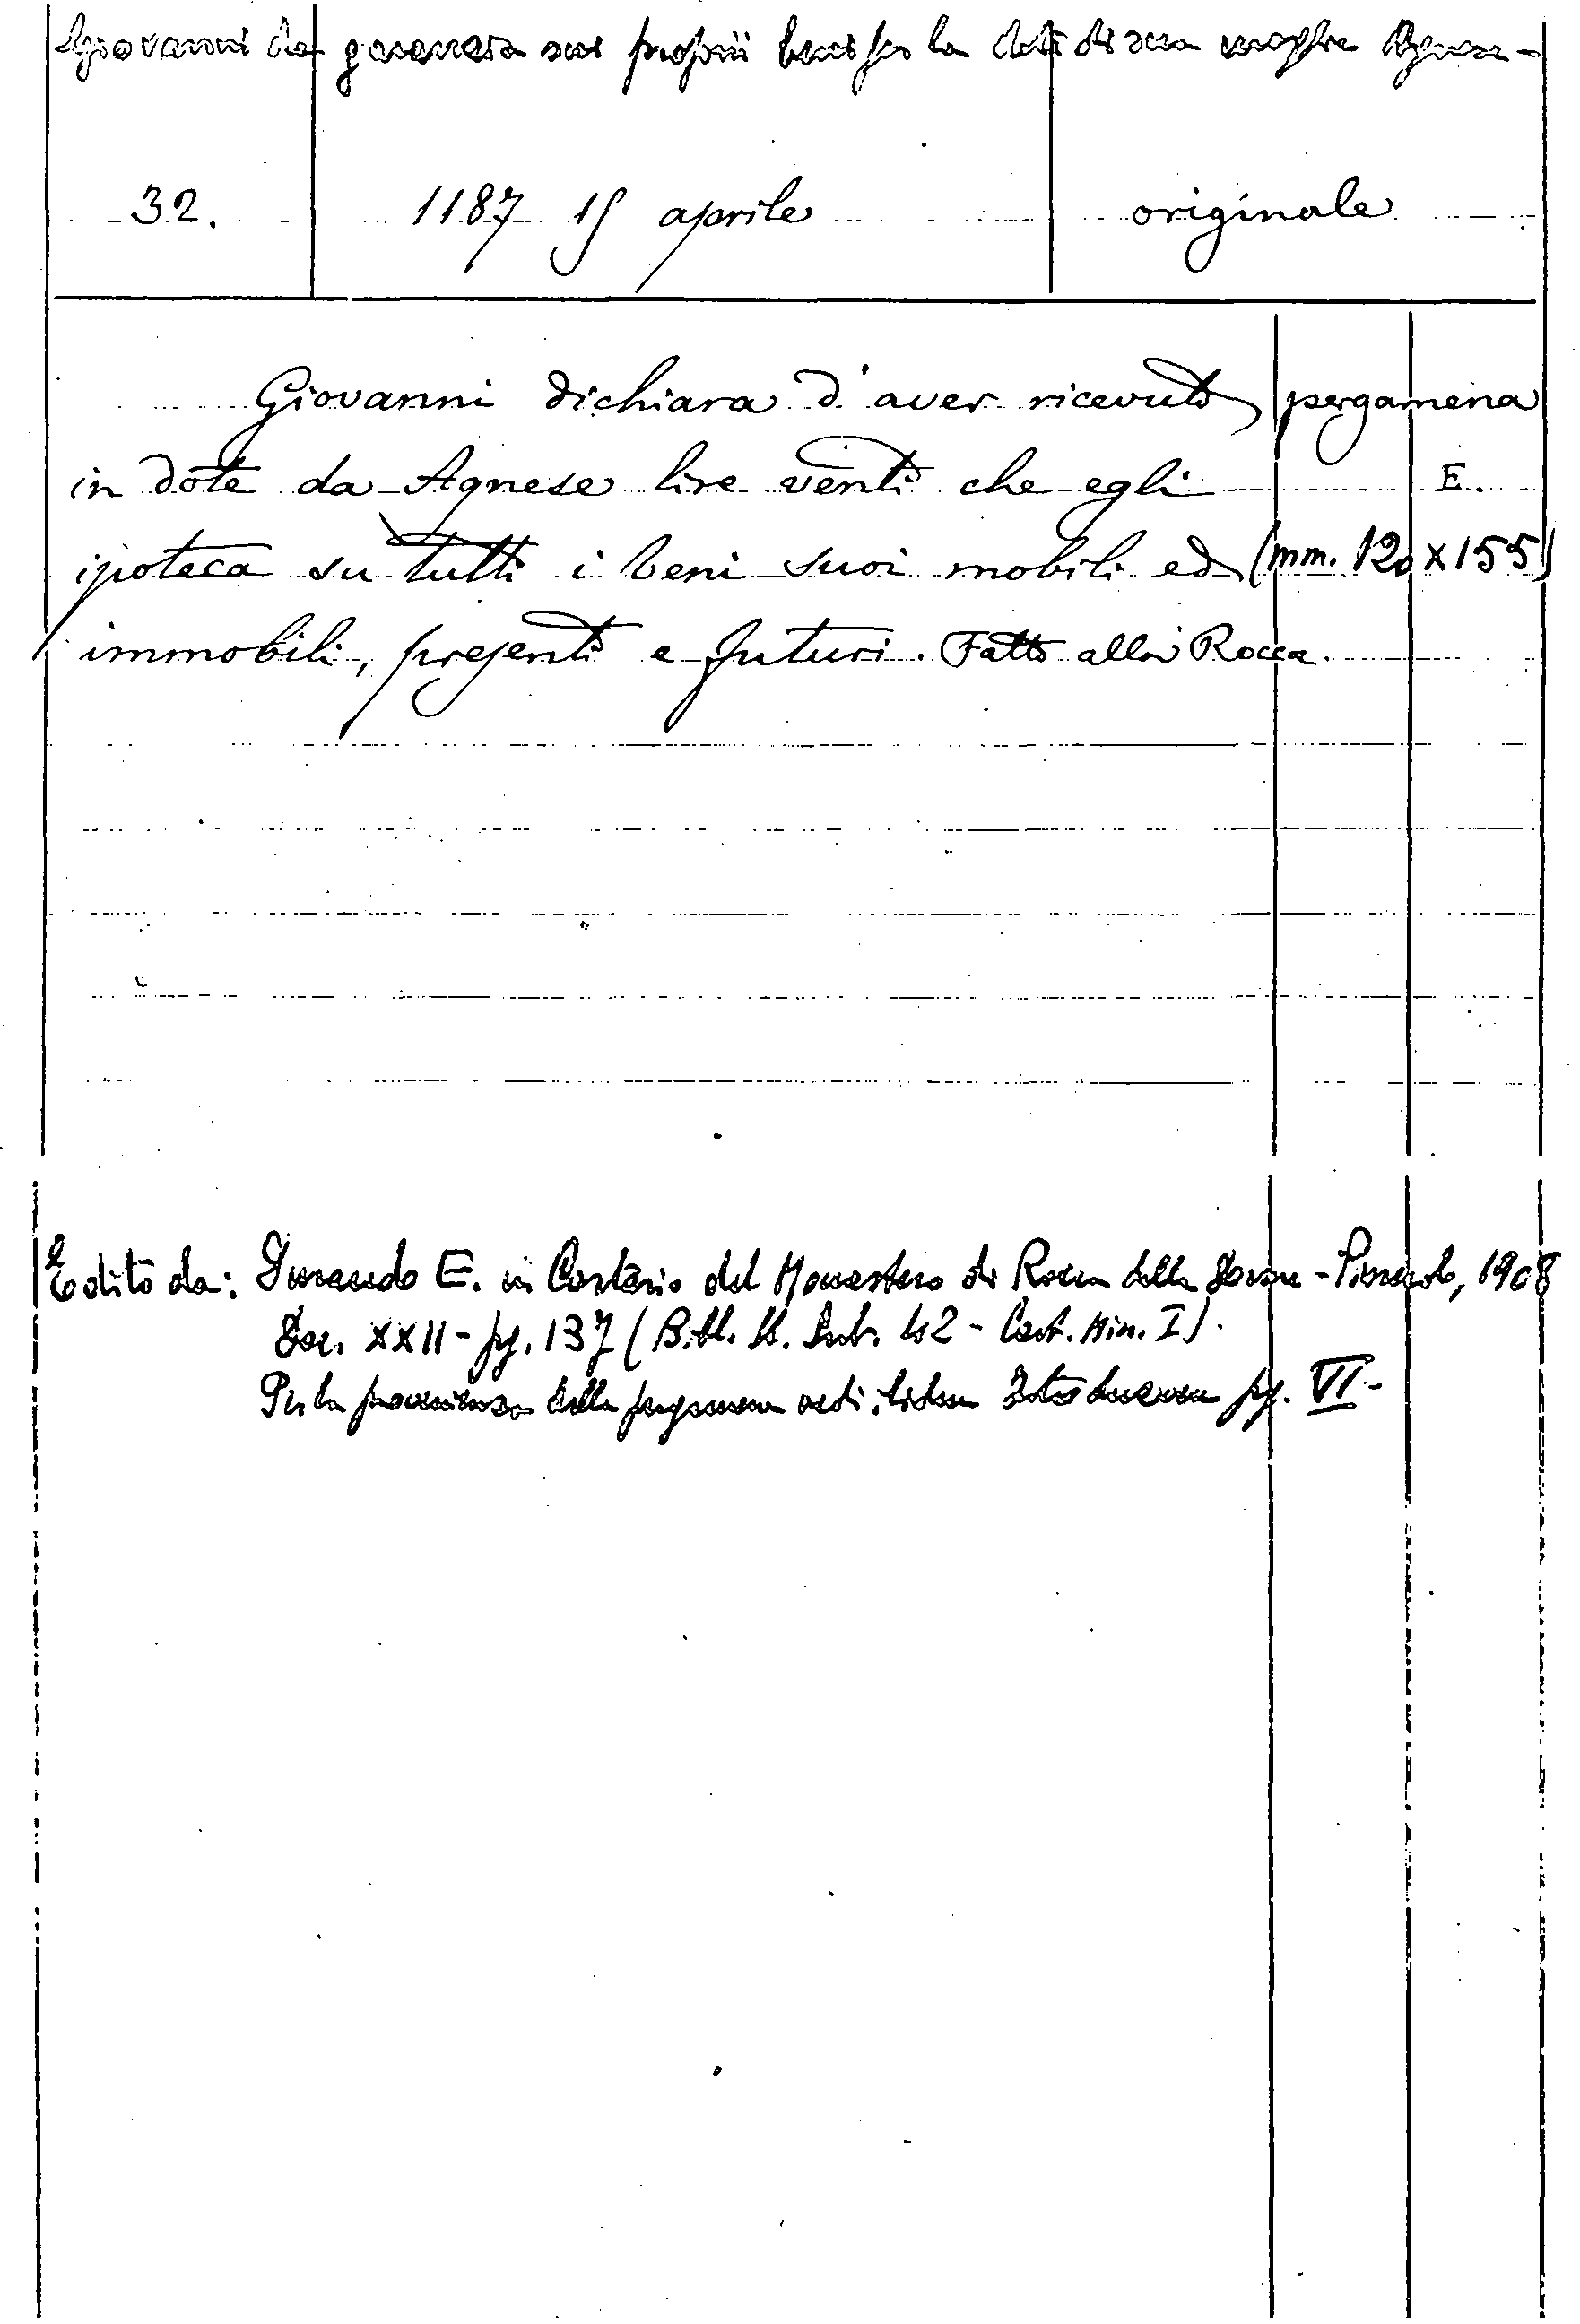 Giovanni dà garanzia sui proprii beni per la dote di sua moglie Agnese -
32. 1187 15 aprile originale
Giovanni dichiara d'aver ricevuto pergamena
in dote da Agnese lire venti che egli E.
ipoteca su tutti i beni suoi mobili ed (mm. 120 x 155)
immobili, presenti e futuri. Fatto alla Rocca.
Edito da: Durando E. in Cartario del Monastero di Rocca delle Donne - Pinerolo, 1908
Doc. XXII - pg. 137 (Bibl. St. Sub. 42 - Cart. Min. I).
Per la provenienza della pergamena vedi ibidem Introduzione pg. VI -